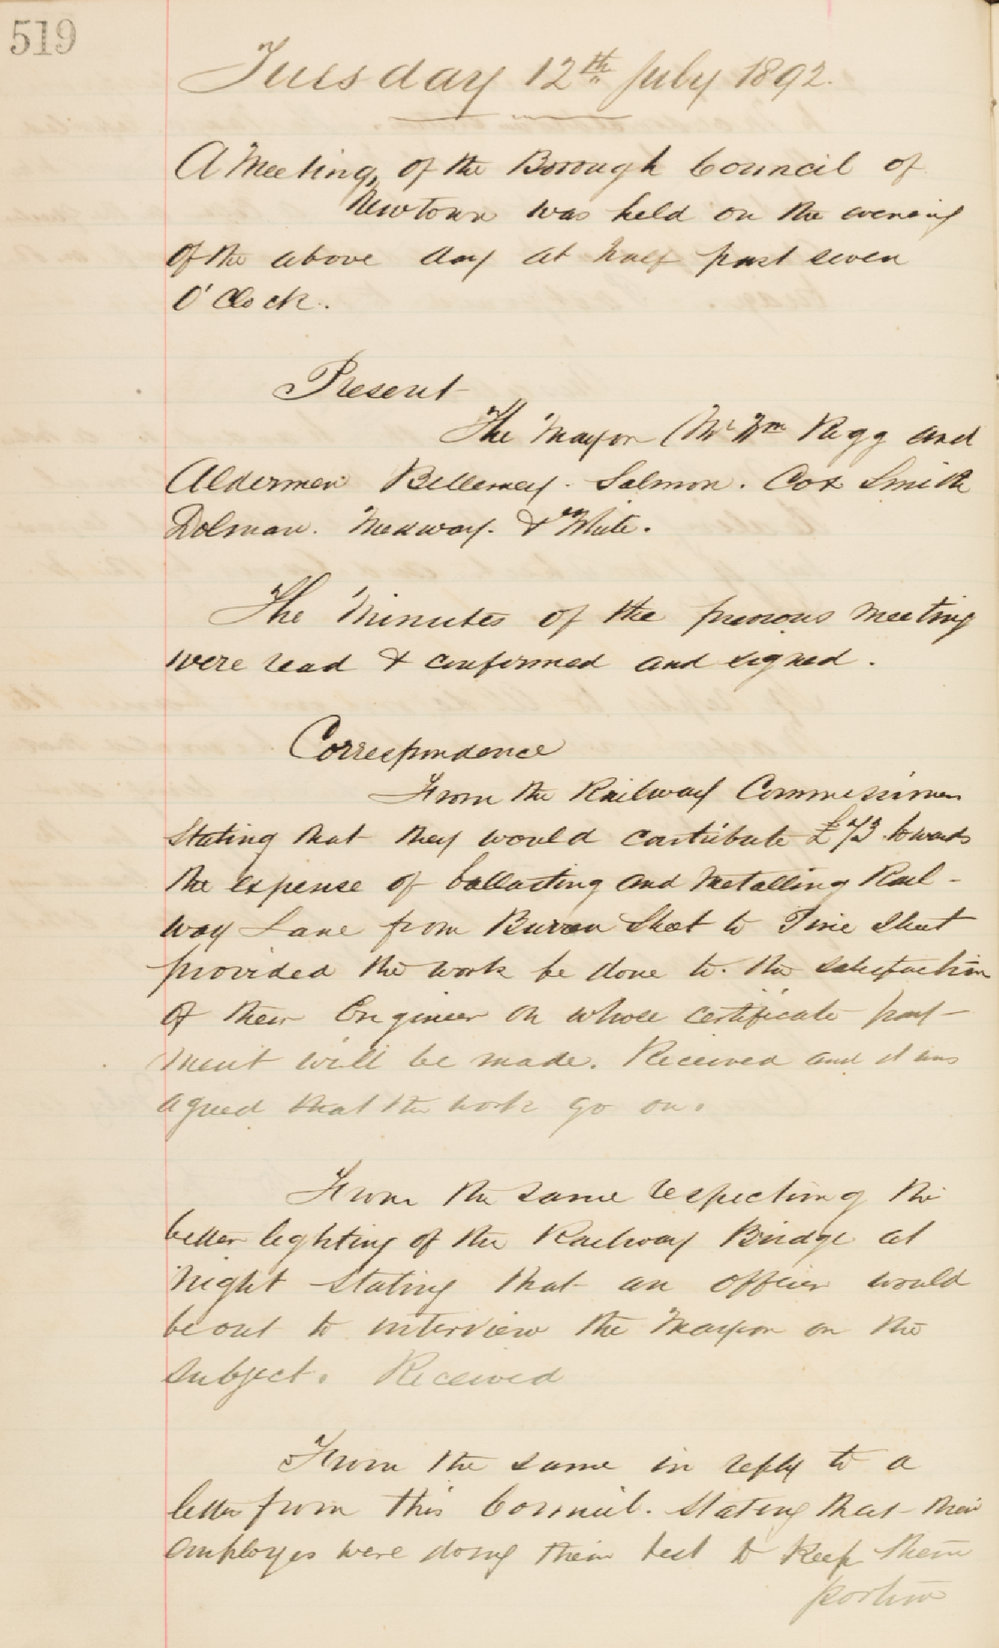 519
Tuesday 12th July 1892.
A Meeting, of the Borough Council of
Newtown was held on the evening
of the above day at half past seven
O'Clock.
Present
The Mayor (Mr Wm Rigg and
Aldermen Bellemey. Salmon. Cox Smith
Dolman. Medway. & White.
The Minutes of the previous meeting
were read & confirmed and signed.
Correspondence
From the Railway Commissioners
Stating that they would contribute £73 towards
the expense of ballasting and Metalling Rail-
way Lane from Burren Street to Pine Street
provided the work be done to the satisfaction
of their Engineer on whose certificate pay-
ment will be made. Received and it was
agreed that the work go on.
From the same respecting the
better lighting of the Railway Bridge at
Night Stating that an officer would
be out to interview the Mayor on the
Subject. Received
From the same in reply to a
letter from this Council. Stating that their
employes were doing their best to keep their
portion